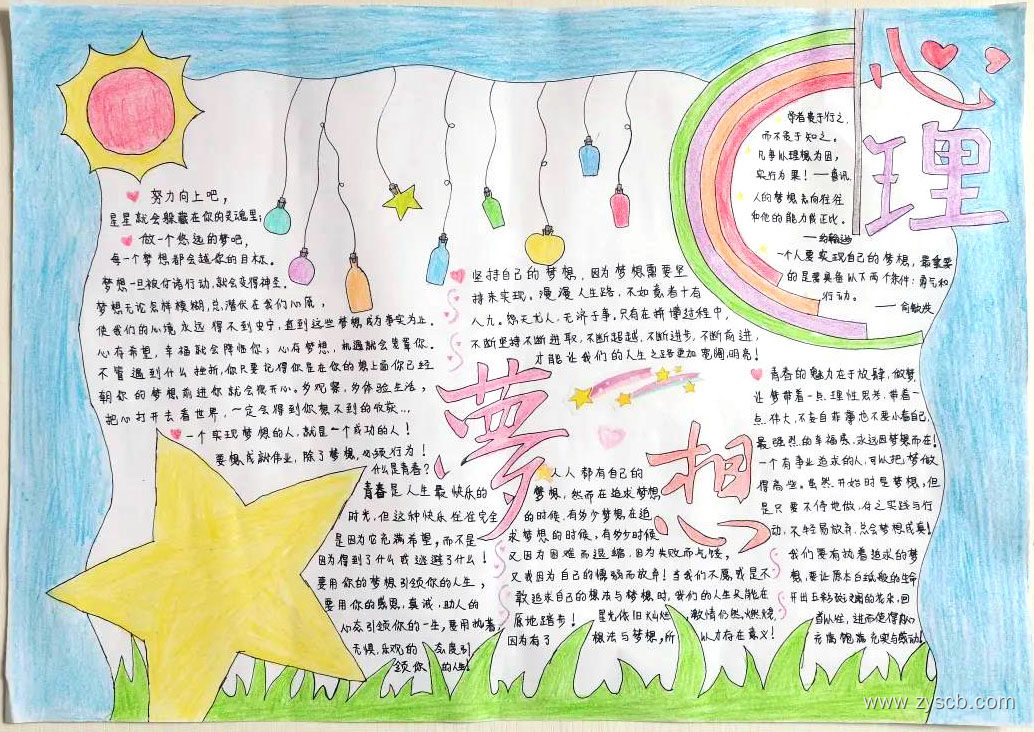 心理
学者贵于行之,
而不贵于知之。
凡事以理想为因,
实行为果!
人的梦想去向往往
和他的能力成正比。
一个人要实现自己的梦想,最重要
的是要具备以下两个条件:勇气和
行动。
—— 俞敏洪
努力向上吧,
星星就会躲藏在你的灵魂里;
做一个悠远的梦吧,
每一个梦想都会越你的目标。
梦想一旦被付诸行动,就会变得神圣。
梦想无论怎样模糊,总潜伏在我们心底,
使我们的心境永远得不到宁,直到这些梦想成为事实为止。
心存希望,幸福就会降临你;心存梦想,机遇就会笼罩你。
不管遇到什么挫折,你只要记得你是在你的想上面你已经
朝你的梦想前进你就会很开心。多观察,多体验生活,
把心打开去看世界,一定会得到你想不到的收获...
一个实现梦想的人,就是一个成功的人!
要想成就伟业,除了梦想,必须行为!
坚持自己的梦想,因为梦想需要坚
持来实现。漫漫人生路,不如意者十有
八九。怨天尤人,无济于事,只有在拼搏过程中,
不断坚持不断进取,不断超越,不断进步,不断前进,
才能让我们的人生之路更加宽阔,明亮!
夢想
什么是青春?
青春是人生最快乐的
时光,但这种快乐往往完全
是因为它充满希望,而不是
因为得到了什么或逃避了什么!
要用你的梦想引领你的人生,
要用你的感恩,真诚,助人的
心态引领你的一生,要用执着,
无惧,乐观的态度引
领你的人生!
人人都有自己的
梦想,然而在追求梦想
的时候,有多少梦想,在追
求梦想的时候,有多少时候
又因为困难而退缩,因为失败而气馁,
又或因为自己的懦弱而放弃!当我们不愿或是不
敢追求自己的想法与梦想时,我们的人生只能在
原地踏步!星光依旧灿烂,激情仍然燃烧
因为有了想法与梦想,所以才存在意义!
青春的魅力在于放肆,做梦
让梦带着一点理性思考,带着一
点伟大,不妄自菲薄也不要小看自己,
最强烈的幸福感,永远因梦想而在!
一个有事业追求的人,可以把"梦"做
得高些。虽然开始时是梦想,但
是只要不停地做,付之实践与行
动,不轻易放弃,总会梦想成真!
我们要有执着追求的梦
想,要让原本白纸般的生命
开出五彩斑斓的花朵,回
首从往,进而使得内心
充满饱满充实与感动!
www.zyscb.com